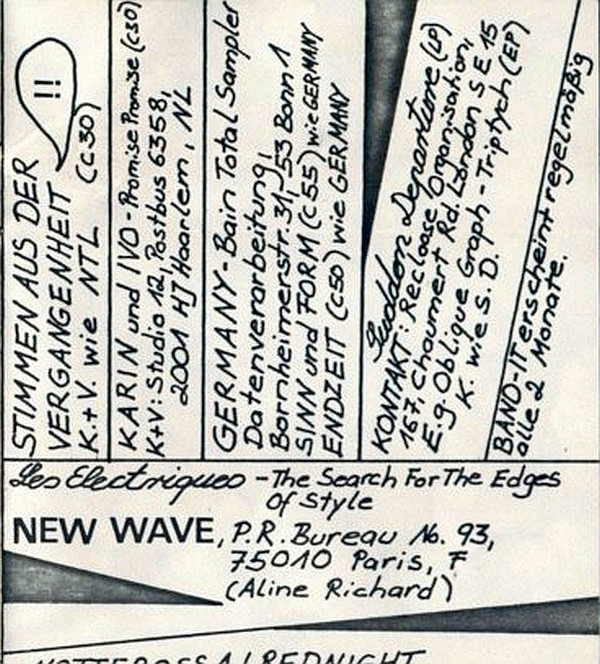 STIMMEN AUS DER
VERGANGENHEIT (C30)
K.+V. wie NTL
!!
KARIN und IVO - Promise Promise (C30)
K+V: Studio 12, Postbus 6358,
2001 HJ Haarlem, NL
GERMANY - Bain Total Sampler
Datenverarbeitung,
Bornheimerstr. 31, 53 Bonn 1
SINN und FORM (C-55) wie GERMANY
ENDZEIT (C50) wie GERMANY
Sudden Departure (LP)
KONTAKT: Recloose Organisation,
167, Chaumert Rd. London SE 15
E.g. Oblique Graph - Triptych (EP)
K. wie S. D.
BAND-IT erscheint regelmäßig
alle 2 Monate.
Les Electriques - The Search For The Edges
Of Style
NEW WAVE, P.R. Bureau No. 93,
75010 Paris, F
(Aline Richard)